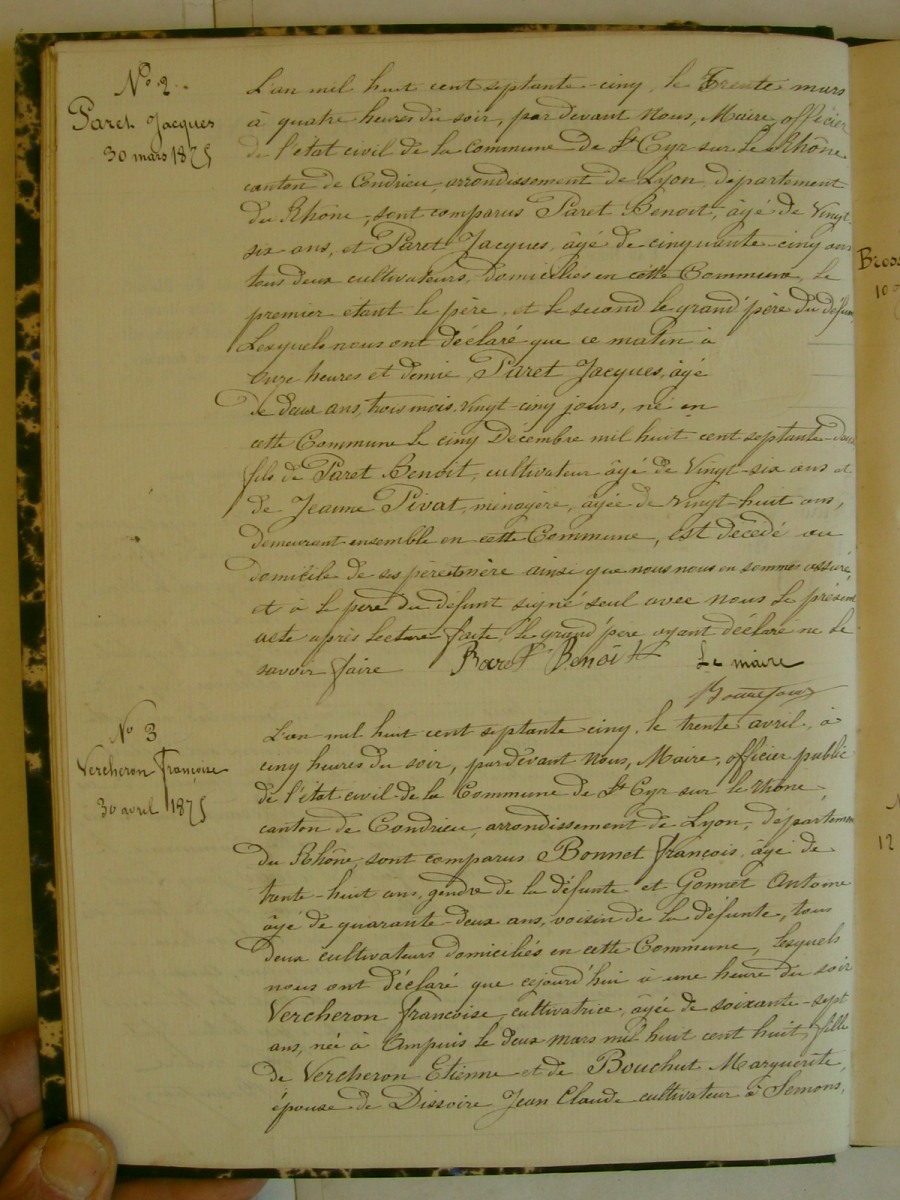 N° 2.
Paret Jacques
30 mars 1875
L'an mil huit cent septante-cinq, le Trente mars
à quatre heures du soir, par devant Nous, Maire, officier
de l'état civil de la Commune de St Cyr sur le Rhône
canton de Condrieu, arrondissement de Lyon, département
du Rhône, sont comparus Paret Benoit, âgé de Vingt
six ans, et Paret Jacques, âgé de cinquante-cinq ans
tous deux cultivateurs, domiciliés en cette Commune, le
premier étant le père, et le second le grand'père du défunt,
Lesquels nous ont déclaré que ce matin à
onze heures et demie, Paret Jacques, âgé
de deux ans, trois mois, vingt-cinq jours, né en
cette Commune le cinq Décembre mil huit cent septante-deux
fils de Paret Benoit, cultivateur âgé de Vingt-six ans et
de Jeanne Pivat, ménagère, âgée de vingt huit ans,
demeurant ensemble en cette Commune, est décédé au
domicile de ses père et mère ainsi que nous nous en sommes assuré
et à le père du défunt signé seul avec nous le présent
acte après lecture faite, le grand'père ayant déclaré ne le
savoir faire Paret Benoit Le maire
N° 3
Vercheron françoise
30 avril 1875
L'an mil huit cent septante cinq, le trente avril, à
cinq heures du soir, pardevant Nous, Maire, officier public
de l'état civil de la Commune de St Cyr sur le Rhône,
canton de Condrieu, arrondissement de Lyon, département
du Rhône, sont comparus Bonnet françois, âgé de
trente-huit ans, gendre de la défunte et Gonnet Antoine
âgé de quarante-deux ans, voisin de la défunte, tous
deux cultivateurs domiciliés en cette Commune, Lesquels
nous ont déclaré que cejourd'hui à une heure du soir
Vercheron francoise, cultivatrice, âgée de soixante-sept
ans, née à Ampuis le deux mars mil huit cent huit, fille
de Vercheron Etienne et de Bouchut Marguerite,
épouse de Dissoire Jean Claude cultivateur à Semons,